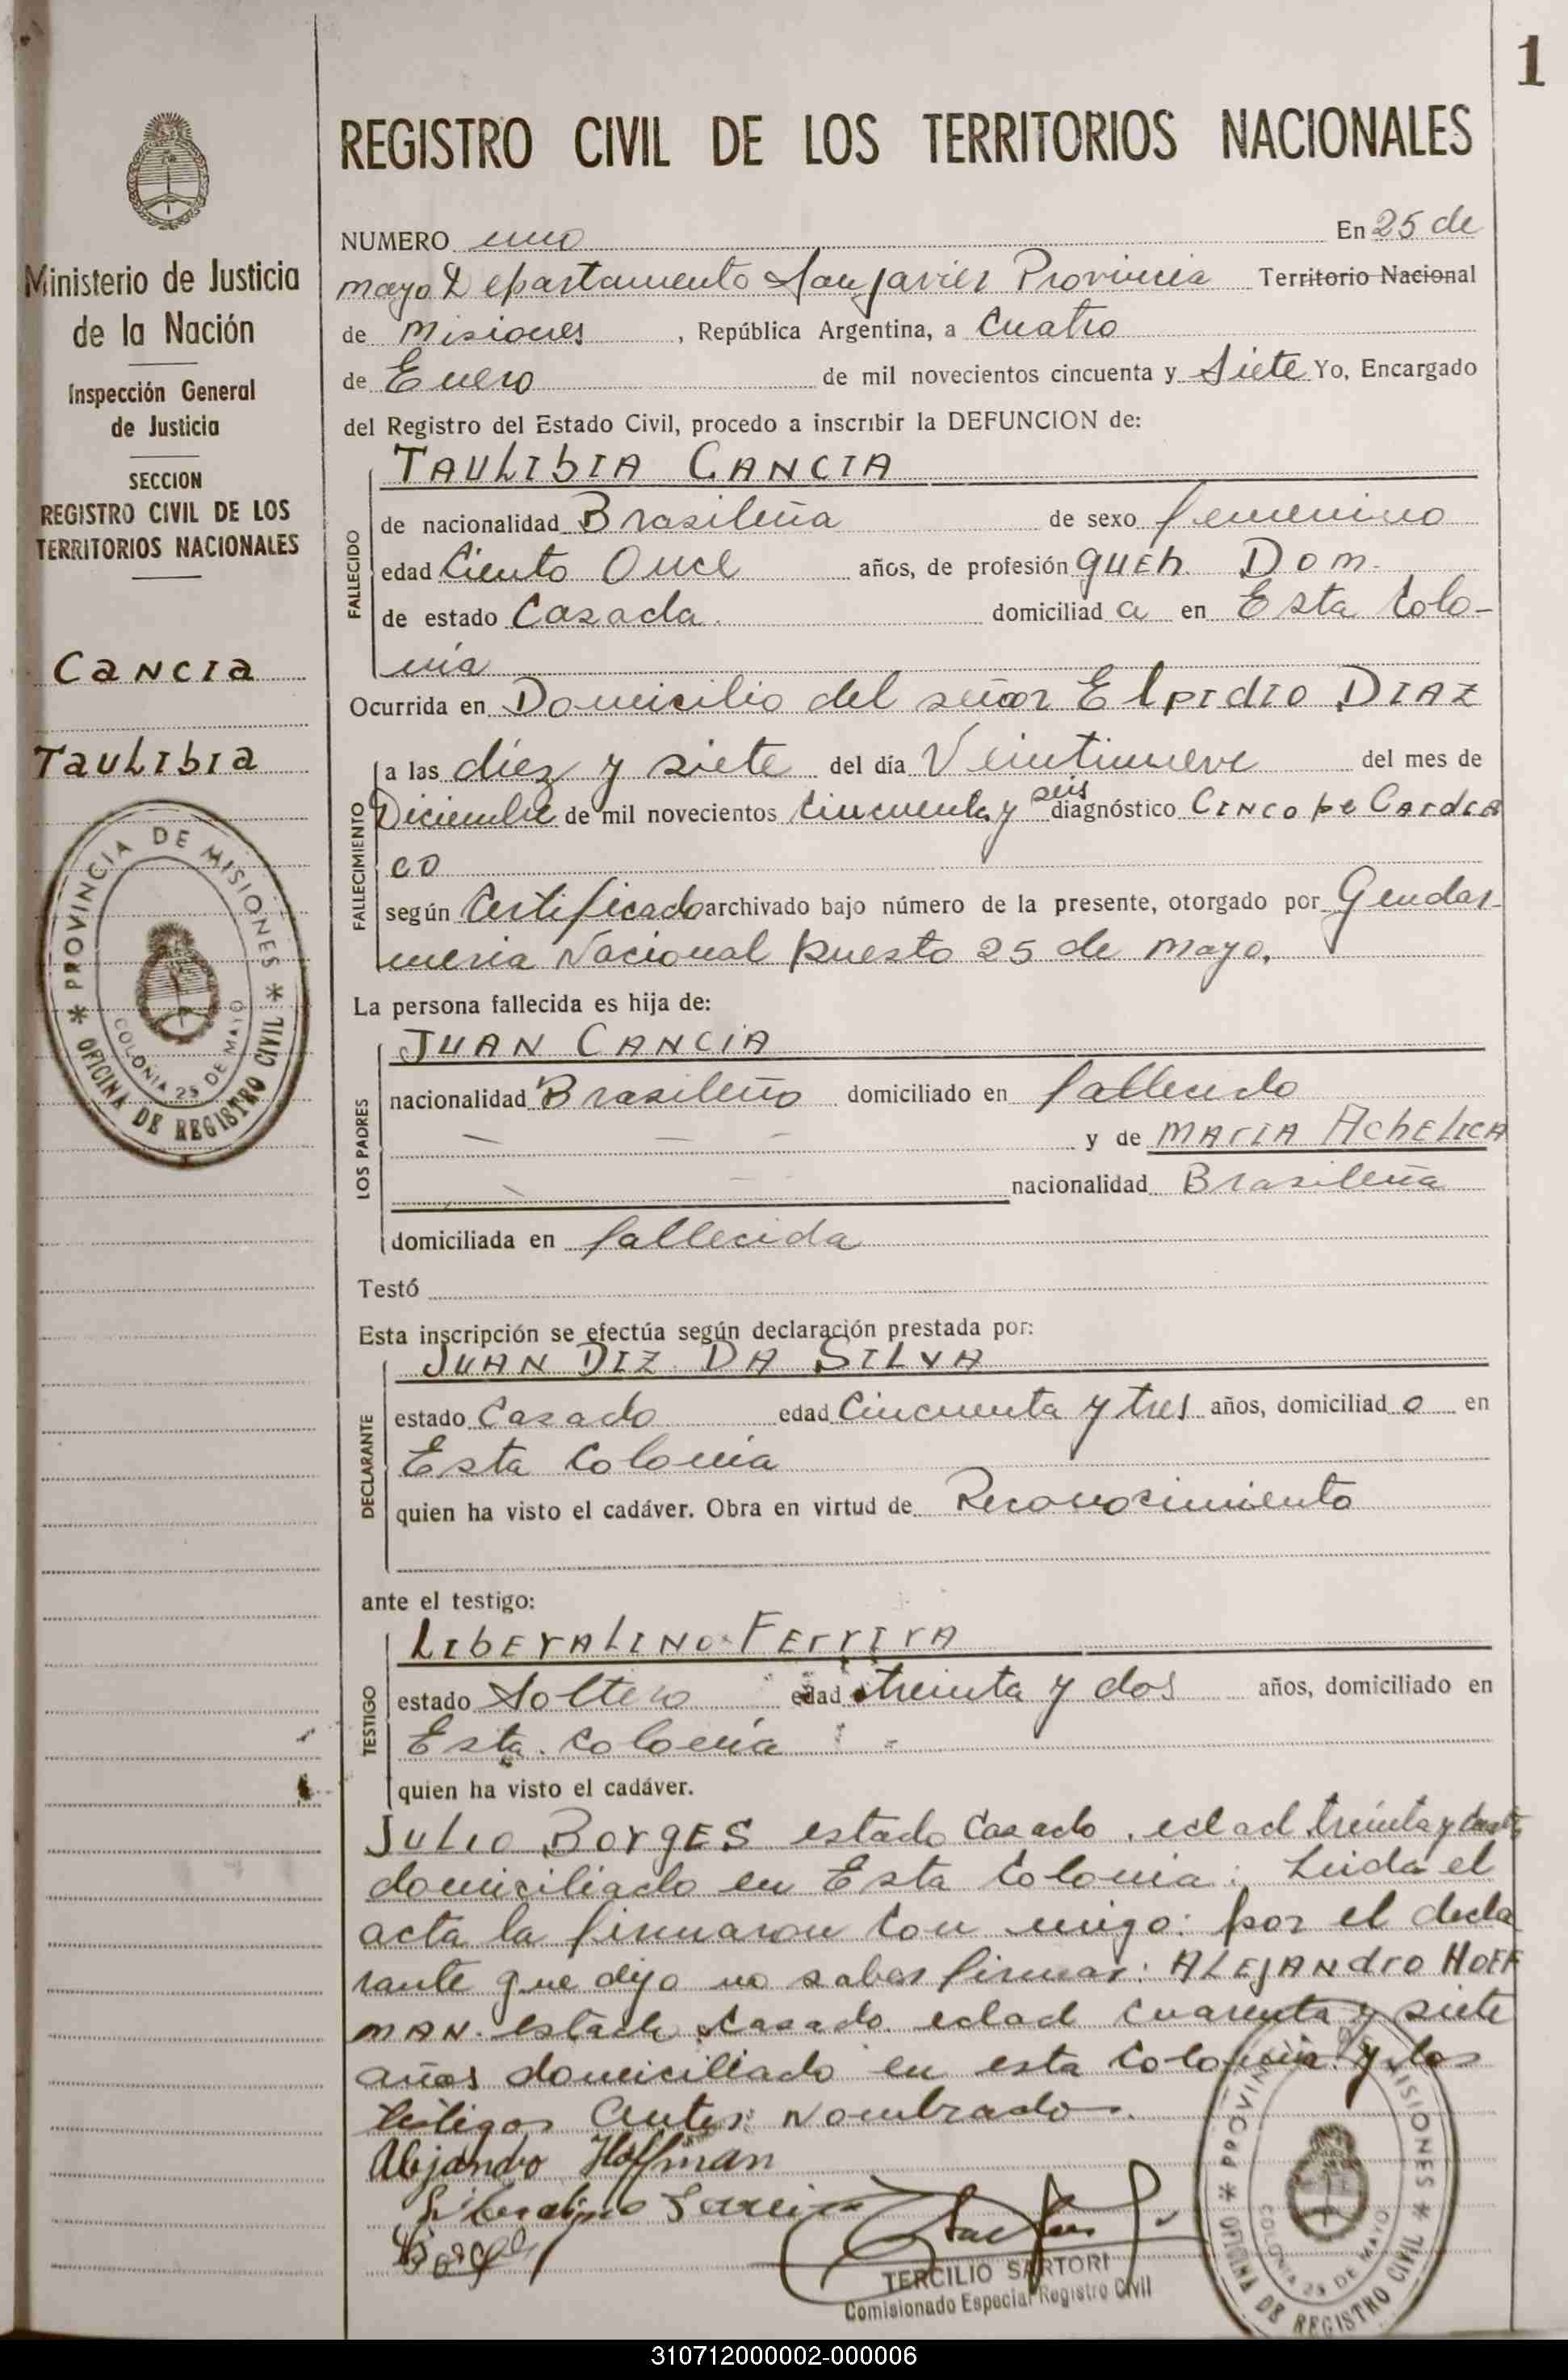 1
REGISTRO CIVIL DE LOS TERRITORIOS NACIONALES
Ministerio de Justicia
de la Nación
Inspección General
de Justicia
SECCION
REGISTRO CIVIL DE LOS
TERRITORIOS NACIONALES
Cancia
Taulibia
* PROVINCIA DE MISIONES *
OFICINA DE REGISTRO CIVIL
COLONIA 25 DE MAYO
NUMERO uno En 25 de
mayo Departamento San Javier Provincia Territorio Nacional
de Misiones, República Argentina, a Cuatro
de Enero de mil novecientos cincuenta y Siete Yo, Encargado
del Registro del Estado Civil, procedo a inscribir la DEFUNCION de:
TAULIBIA CANCIA
FALLECIDO
de nacionalidad Brasileña de sexo femenino
edad Ciento Once años, de profesión queh. Dom.
de estado Casada. domiciliad a en Esta Colo-
nia
Ocurrida en Domicilio del señor Elpidio DIAZ
FALLECIMIENTO
a las diez y siete del día Veintinueve del mes de
Diciembre de mil novecientos Cincuenta y seis diagnóstico Cinco pe Cardia
co
según Certificado archivado bajo número de la presente, otorgado por Gendar-
meria Nacional puesto 25 de mayo.
La persona fallecida es hija de:
JUAN CANCIA
LOS PADRES
nacionalidad Brasileño domiciliado en fallecido
y de MARIA AChELICA
nacionalidad Brasileña
domiciliada en fallecida
Testó
Esta inscripción se efectúa según declaración prestada por:
JUAN DIZ DA SILVA
DECLARANTE
estado Casado edad Cincuenta y tres años, domiciliad o en
Esta Colonia
quien ha visto el cadáver. Obra en virtud de Reconocimiento
ante el testigo:
LIBERALINO FERRIRA
TESTIGO
estado Soltero edad treinta y dos años, domiciliado en
Esta Colonia
quien ha visto el cadáver.
Julio Borges estado Casado, edad treinta y
domiciliado en Esta Colonia: Leida el
acta la firmaron Con migo: por el decla
rante que dijo no saber firmar: ALEJANDRO HOFF
MAN. estado Casado edad Cuarenta y siete
años domiciliado en esta Colonia y los
testigos Antes: Nombrados.
Alejandro Hoffman
Liberalino Ferreira
Borges
TERCILIO SARTORI
Comisionado Especial Registro Civil
* PROVINCIA DE MISIONES *
OFICINA DE REGISTRO CIVIL
COLONIA 25 DE MAYO
310712000002-000006